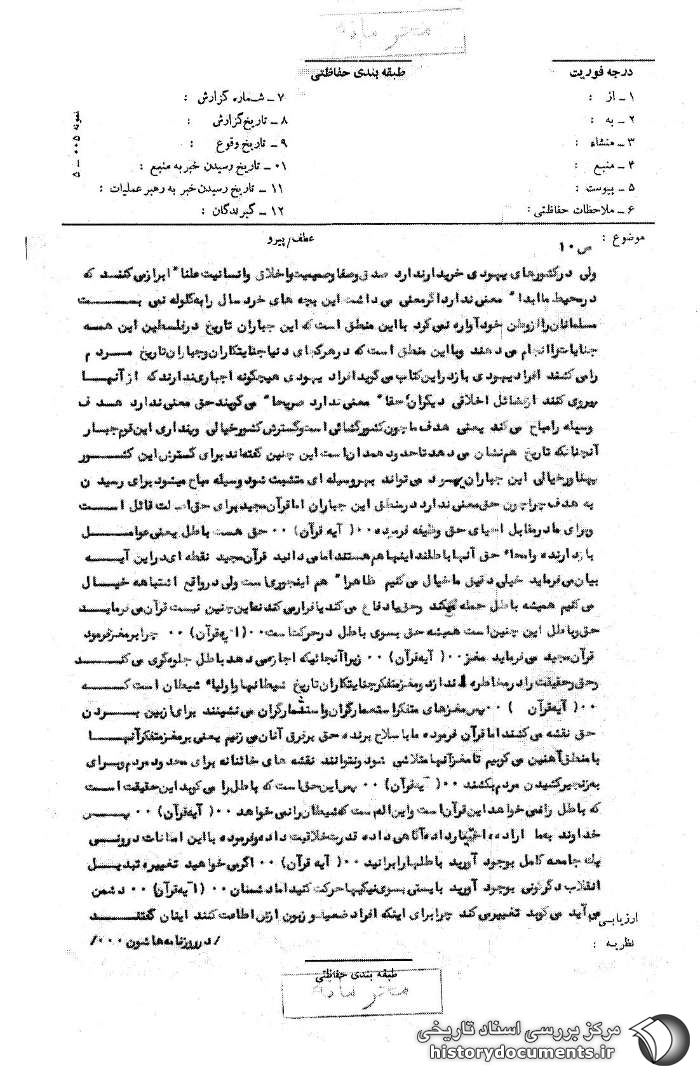 محرمانه
درجه فوریت
طبقه بندی حفاظتی
۱ـ از :
۷ـ شماره گزارش :
۲ـ به :
۸ـ تاریخ گزارش :
۳ـ منشاء :
۹ـ تاریخ وقوع :
۴ـ منبع :
۰۱ـ تاریخ رسیدن خبر به منبع :
۵ـ پیوست :
۱۱ـ تاریخ رسیدن خبر به رهبر عملیات :
۶ـ ملاحظات حفاظتی :
۱۲ـ گیرندگان :
نمونه ۰۰۵ ـ ۵
موضوع :
عطف/پیرو
ص ۱۰
ولی در کشورهای یهودی خریدار ندارد صدق و صفا و صمیمیت و اخلاق و انسانیت علنا" ابراز می کنند که
در محیط ما ابدا" معنی ندارد اگر معنی می داشت این بچه های خرد سال را به گلوله نمی بست
مسلمانان را از وطن خود آواره نمی کرد با این منطق است که این جباران تاریخ در فلسطین این همه
جنایات را انجام می دهند و با این منطق است که در هر کجای دنیا جنایتکاران و جباران تاریخ مردم
را می کشند افراد یهودی باز در این کتاب می گوید افراد یهودی هیچگونه اجباری ندارند که از آنها
پیروی کنند از فضائل اخلاقی دیگران حقا" معنی ندارد صریحا" می گویند حق معنی ندارد هدف
وسیله را مباح می کند یعنی هدف ما چون کشور گشائی است و گسترش کشور خیالی و پنداری این قوم جبار
آنچنانکه تاریخ هم نشان می دهد تا حدود همدان است این چنین گفته اند برای گسترش این کشور
پهناور خیالی این جباران یهود می تواند بهر وسیله ای متشبث شود وسیله مباح میشود برای رسیدن
به هدف چرا چون حق معنی ندارد در منطق این جباران اما قرآن مجید برای حق اصالت قائل است
و برای ما در مقابل احیای حق وظیفه فرموده ۰۰( آیه قرآن) ۰۰ حق هست باطل یعنی عوامل
بازدارنده واحدا" حق آنها باطلند اینها هم هستند اما می دانید قرآن مجید نقطه ای در این آیه
بیان می فرماید خیلی دقیق ما خیال می کنیم ظاهرا" هم اینجوری است ولی در واقع اشتباهه خیال
می کنیم همیشه باطل حمله میکند و حق یا دفاع می کند یا فرار می کند نه این چنین نیست قرآن می فرماید
حق و باطل این چنین است همیشه حق بسوی باطل در حرکت است ۰۰(آیه قرآن) ۰۰ چرا بر مغز فرمود
قرآن مجید می فرماید مغز ۰۰( آیه قرآن) ۰۰ زیرا آنجائیکه اجازه نمی دهد باطل جلوه گری می کند
و حق و حقیقت را در مخاطره اندازد و مغز متفکر جنایتکاران تاریخ شیطانها و اولیاء شیطان است که
۰۰( آیه قرآن ) ۰۰ پس مغزهای متفکر استعمارگران و استثمارگران می نشینند برای از بین بردن
حق نقشه می کشند اما قرآن فرموده ما با سلاح برنده حق بر فرق آنان می زنیم یعنی بر مغز متفکر آنها
با منطق آهنین می کوبیم تا مغز آنها متلاشی شود و نتوانند نقشه های خائنانه برای محدود مردم و برای
به زنجیر کشیدن مردم بکشند ۰۰( آیه قرآن) ۰۰ پس این حق است که باطل را می کوبد این حقیقت است
که باطل را نمی خواهد این قرآن است و این الله است که شیطان را نمی خواهد ۰۰( آیه قرآن) ۰۰ پس
خداوند به ما اراده، اختیار داده آگاهی داده قدرت خلاقیت داده و فرموده با این امکانات درونی
یک جامعه کامل بوجود آورید باطلها را برانید ۰۰( آیه قرآن) ۰۰ اگر می خواهید تغییر، تبدیل
انقلاب دگرگونی بوجود آورید بایستی بسوی نیکیها حرکت کنید اما دشمنان ۰۰ (آیه قرآن) ۰۰ دشمن
می آید می گوید تغییر می کند چرا برای اینکه افراد ضعیف و زبون ازش اطاعت کنند ایشان گفتند
/ در روزنامه هاشون ۰۰۰/
ارزیابی
نظریه :
طبقه بندی حفاظتی
محرمانه
مرکز بررسی اسناد تاریخی
historydocuments.ir